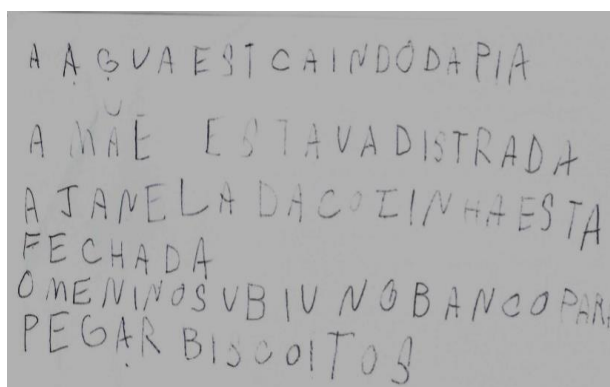 A AGUAESTCAINDODAPIA
A MÃE ESTAVADISTRADA
A JANELA DACOZINHAESTA
FECHADA
OMENINOSUBIU NOBANCOPARA
PEGAR BISCOITOS